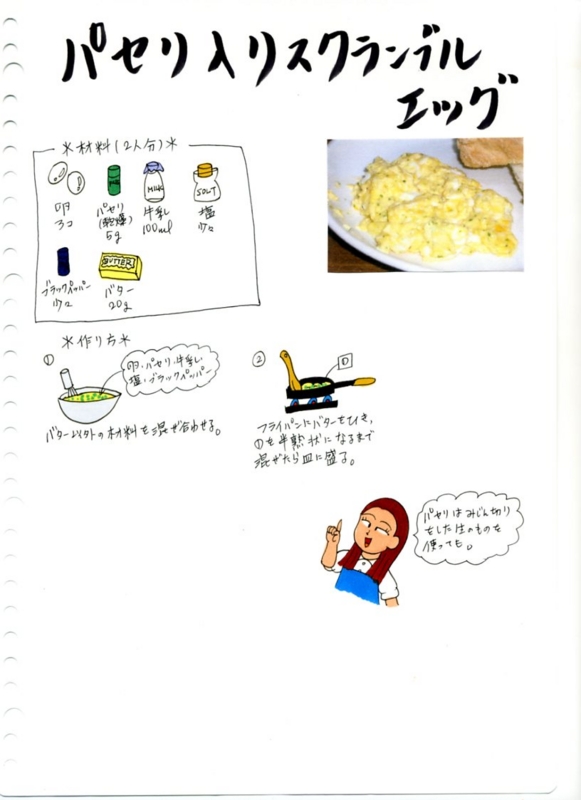 パセリ入りスクランブル
エッグ
＊材料(2人分)＊
卵
3コ
パセリ
(乾燥)
5g
MILK
牛乳
100ml
SOLT
塩
少々
ブラックペッパー
少々
BUTTER
バター
20g
＊作り方＊
①
卵・パセリ・牛乳・
塩・ブラックペッパー
バター以外の材料を混ぜ合わせる。
②
①
フライパンにバターをひき、
①を半熟状になるまで
混ぜたら皿に盛る。
パセリはみじん切り
をした生のものを
使っても。